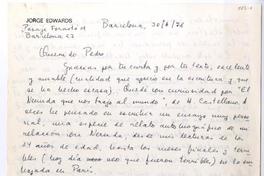 JORGE EDWARDS
Pasaje Forasté 12
Barcelona 23
Barcelona, 30/4/76
Querido Pedro,
Gracias por tu carta y por tu texto, excelente
y amable (cualidad que aprecio en la escritura y que
no es cosa. Quedé con curiosidad por "El
Neruda que nos trajo al mundo", de H. Castellano. A
veces he pensado en escribir un ensayo muy perso
nal, una especie de relato autobiográfico de mi
relación con Neruda, desde mis lecturas de la
14 años de edad, hasta los meses finales y terri
bles (hoy día veo que fueron terribles) en la em
bajada en París.